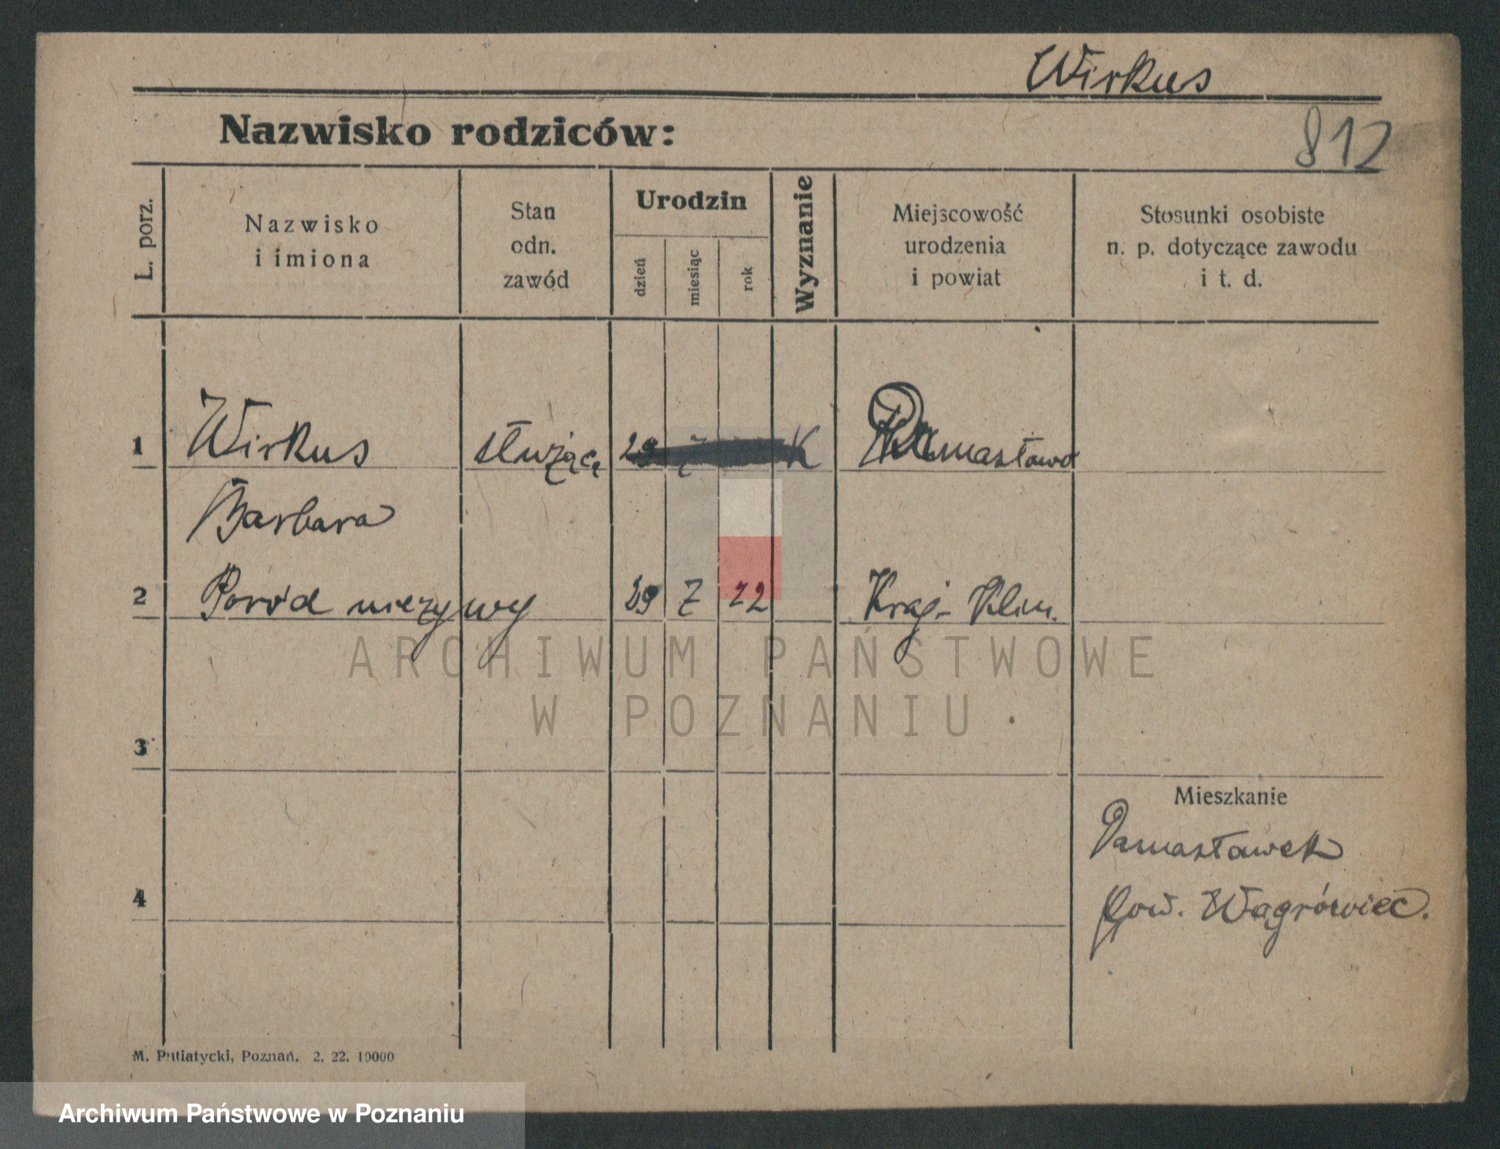 Wirkus
Nazwisko rodziców:
812
L. porz.
Nazwisko
i imiona
Stan
odn.
zawód
Urodzin
dzień
miesiąc
rok
Wyznanie
Miejscowość
urodzenia
i powiat
Stosunki osobiste
n. p. dotyczące zawodu
i t. d.
1 Wirkus służąca 29 7 K
Barbara
2 Poród nieżywy 29 7 22 Kraj. Klin.
ARCHIWUM PAŃSTWOWE
W POZNANIU
3
Mieszkanie
Damasławek
4
pow. Wągrówiec.
M. Putiatycki, Poznań. 2. 22. 10000
Archiwum Państwowe w Poznaniu